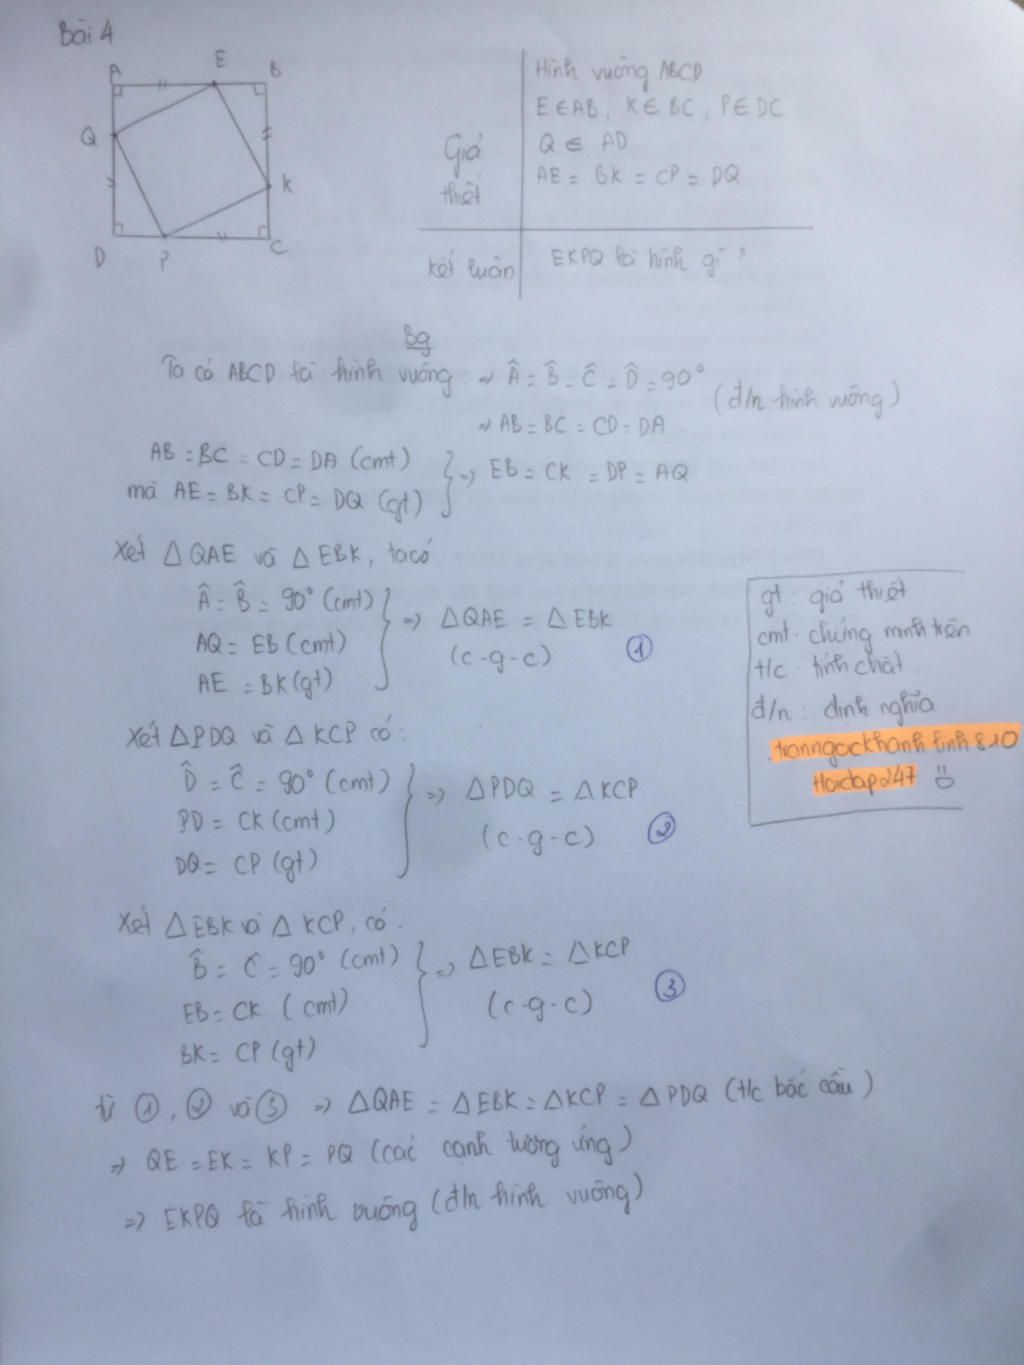 Bài 4
A E B
Q
K
D P C
Giả thiết
Hình vuông ABCD
E ∈ AB, K ∈ BC, P ∈ DC
Q ∈ AD
AE = BK = CP = DQ
Kết luận
EKPQ là hình gì ?
Bg
Ta có ABCD là hình vuông : => Â = B̂ = Ĉ = D̂ = 90°
(đ/n hình vuông)
=> AB = BC = CD = DA
AB = BC = CD = DA (cmt)
mà AE = BK = CP = DQ (gt)
} => EB = CK = DP = AQ
Xét △QAE và △EBK, ta có
Â = B̂ = 90° (cmt)
AQ = EB (cmt)
AE = BK (gt)
} => △QAE = △EBK
(c-g-c) ①
Xét △PDQ và △KCP có:
D̂ = Ĉ = 90° (cmt)
PD = CK (cmt)
DQ = CP (gt)
} => △PDQ = △KCP
(c-g-c) ②
Xét △EBK và △KCP, có.
B̂ = Ĉ = 90° (cmt)
EB = CK (cmt)
BK = CP (gt)
} => △EBK = △KCP
(c-g-c) ③
từ ①, ② và ③ => △QAE = △EBK = △KCP = △PDQ (t/c bắc cầu)
=> QE = EK = KP = PQ (các cạnh tương ứng)
=> EKPQ là hình vuông (đ/n hình vuông)
gt : giả thiết
cmt . chứng minh trên
t/c . tính chất .
đ/n : định nghĩa
tranngockhanhlinh810
Hoidap247